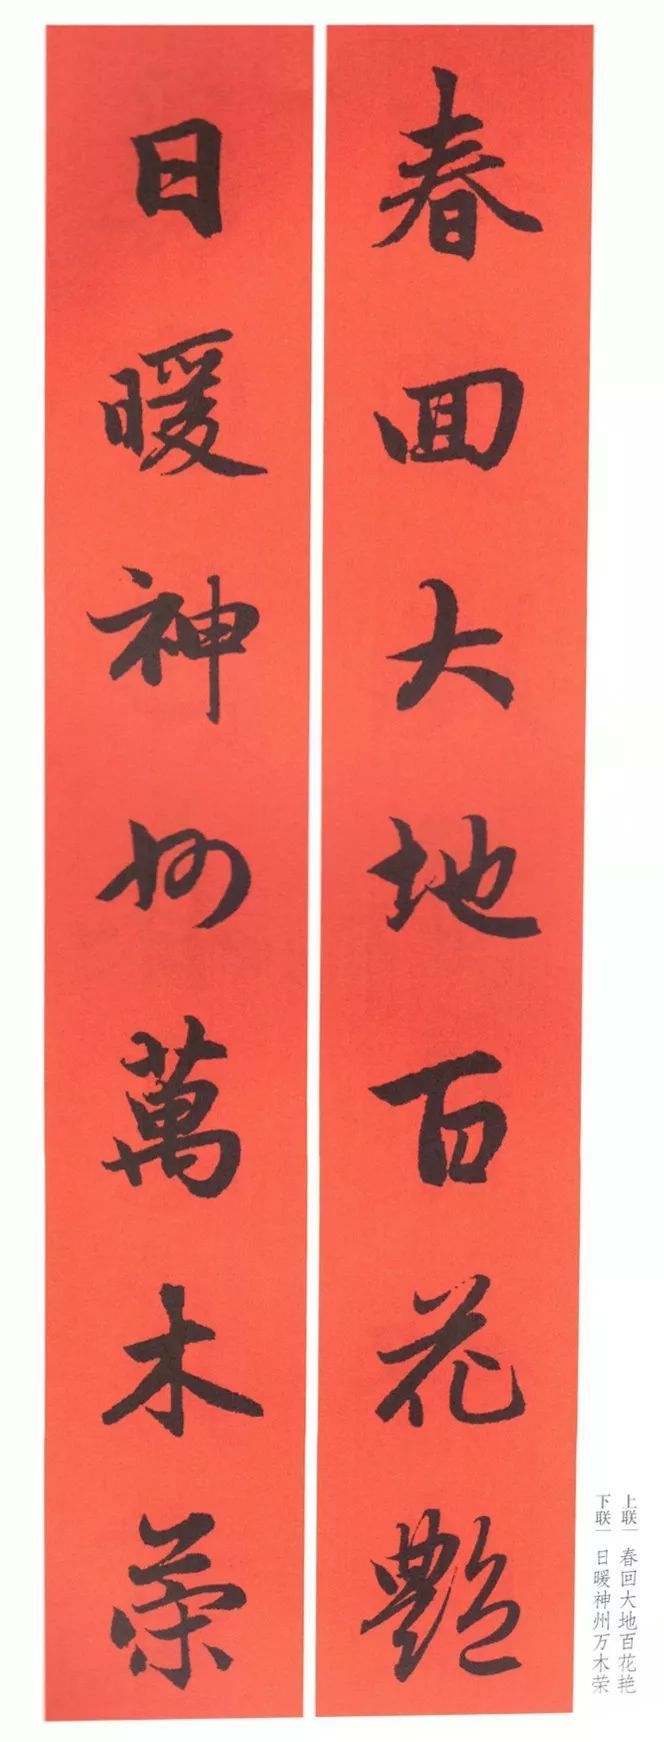 春回大地百花艷
日暖神州萬木荣
上联｜春回大地百花艳
下联｜日暖神州万木荣